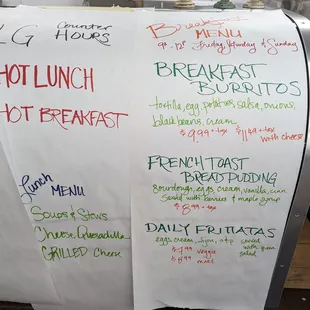 LG Counter
HOURS
HOT LUNCH
HOT BREAKFAST
Lunch
MENU
Soups & Stews
Cheese Quesadilla
GRILLED Cheese
Breakfast
MENU
Friday, Saturday & Sunday
BREAKFAST
BURRITOS
tortilla, egg, potatoes, salsa, onions,
black beans, cream
$9.99 + tax $11.49 + tax
with cheese
FRENCH TOAST
BREAD PUDDING
Sourdough, eggs, cream, vanilla,
with berries & maple syrup
$8.99 + tax
DAILY FRITTATAS
eggs, cream, served
with green
salad
veggie
meat